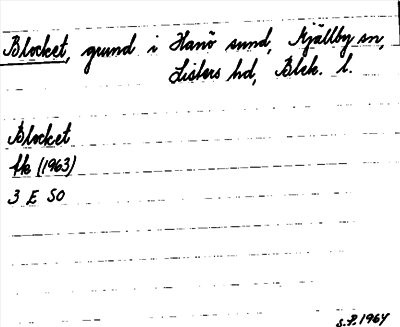 Blocket, grund i Hanö sund, Mjällby sn,
Listers hd, Blek. l.
Blocket
fk (1963)
3 E SO
S.P. 1964